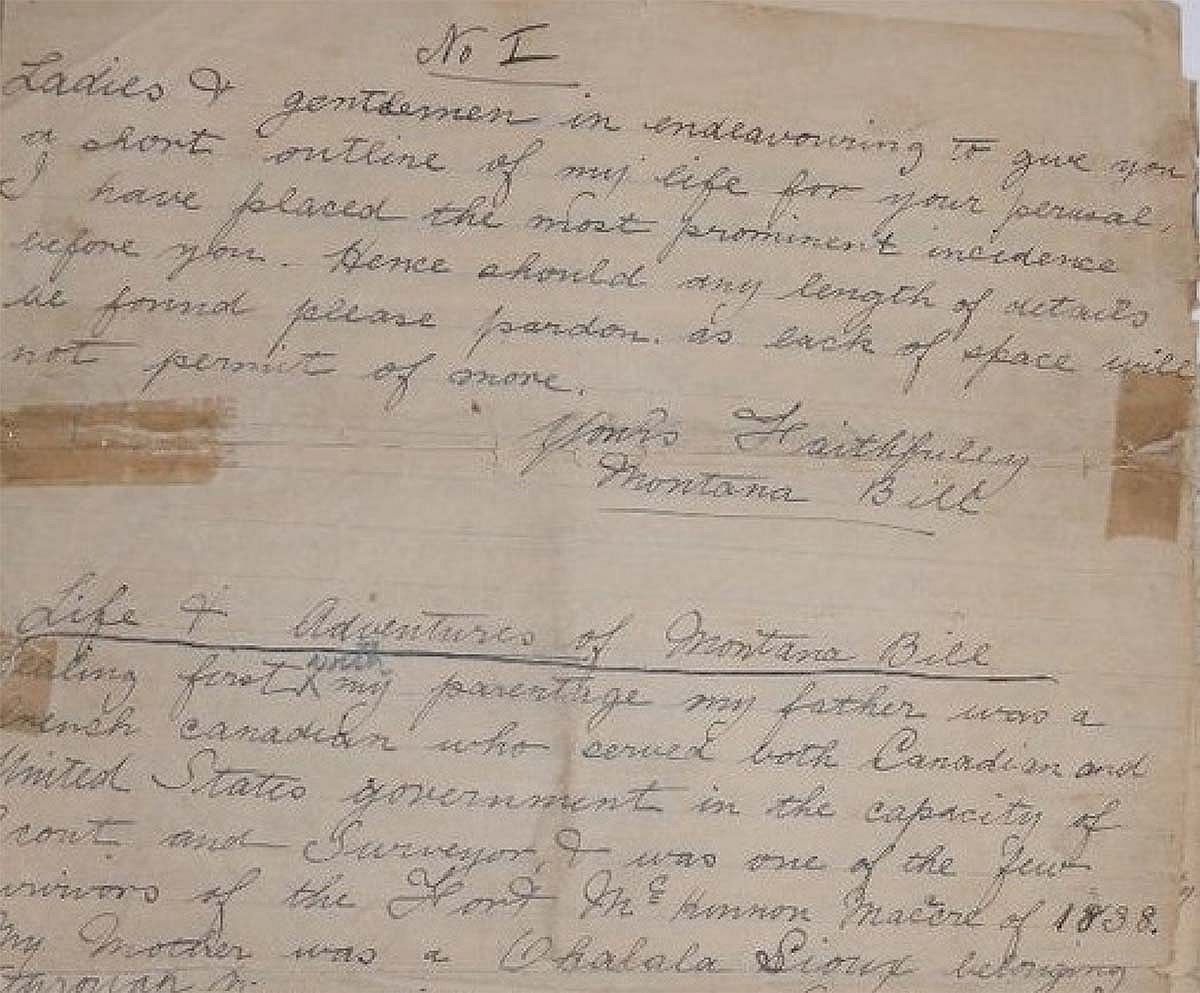 No I
Ladies & gentlemen in endeavouring to give you
a short outline of my life for your perusal,
I have placed the most prominent incidence
before you. Hence should any length of details
be found please pardon. as lack of space will
not permit of more.
Yours Faithfully
Montana Bill
Life & Adventures of Montana Bill
first with my parentage my father was a
french canadian who served both Canadian and
United States government in the capacity of
Scout and Surveyor, & was one of the few
urvivors of the Fort Mc Konnon Macere of 1838.
My Mother was a Okalala Sioux belonging
through